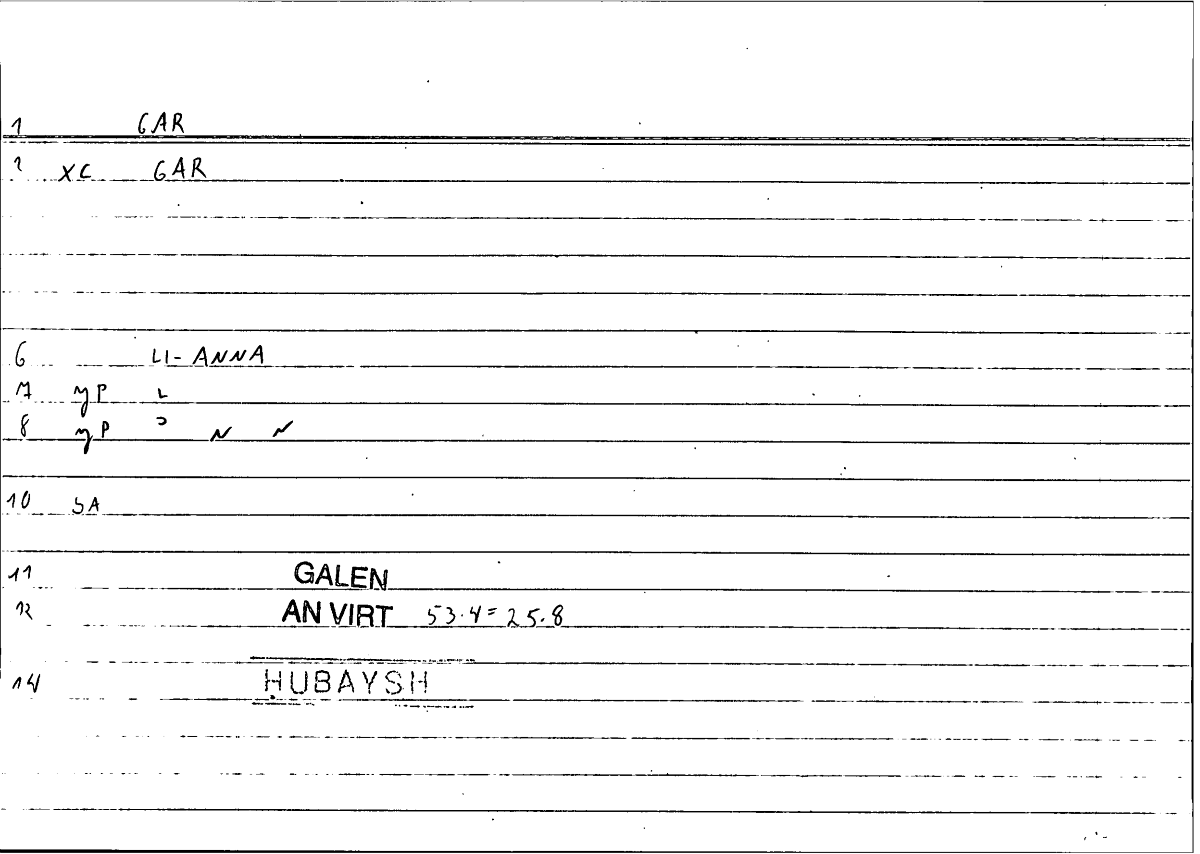 1 GAR
2 XC GAR
6 LI-ANNA
7 P L
8 P N N
10 SA
11 GALEN
12 AN VIRT 53.4=25.8
14 ḤUBAYSH